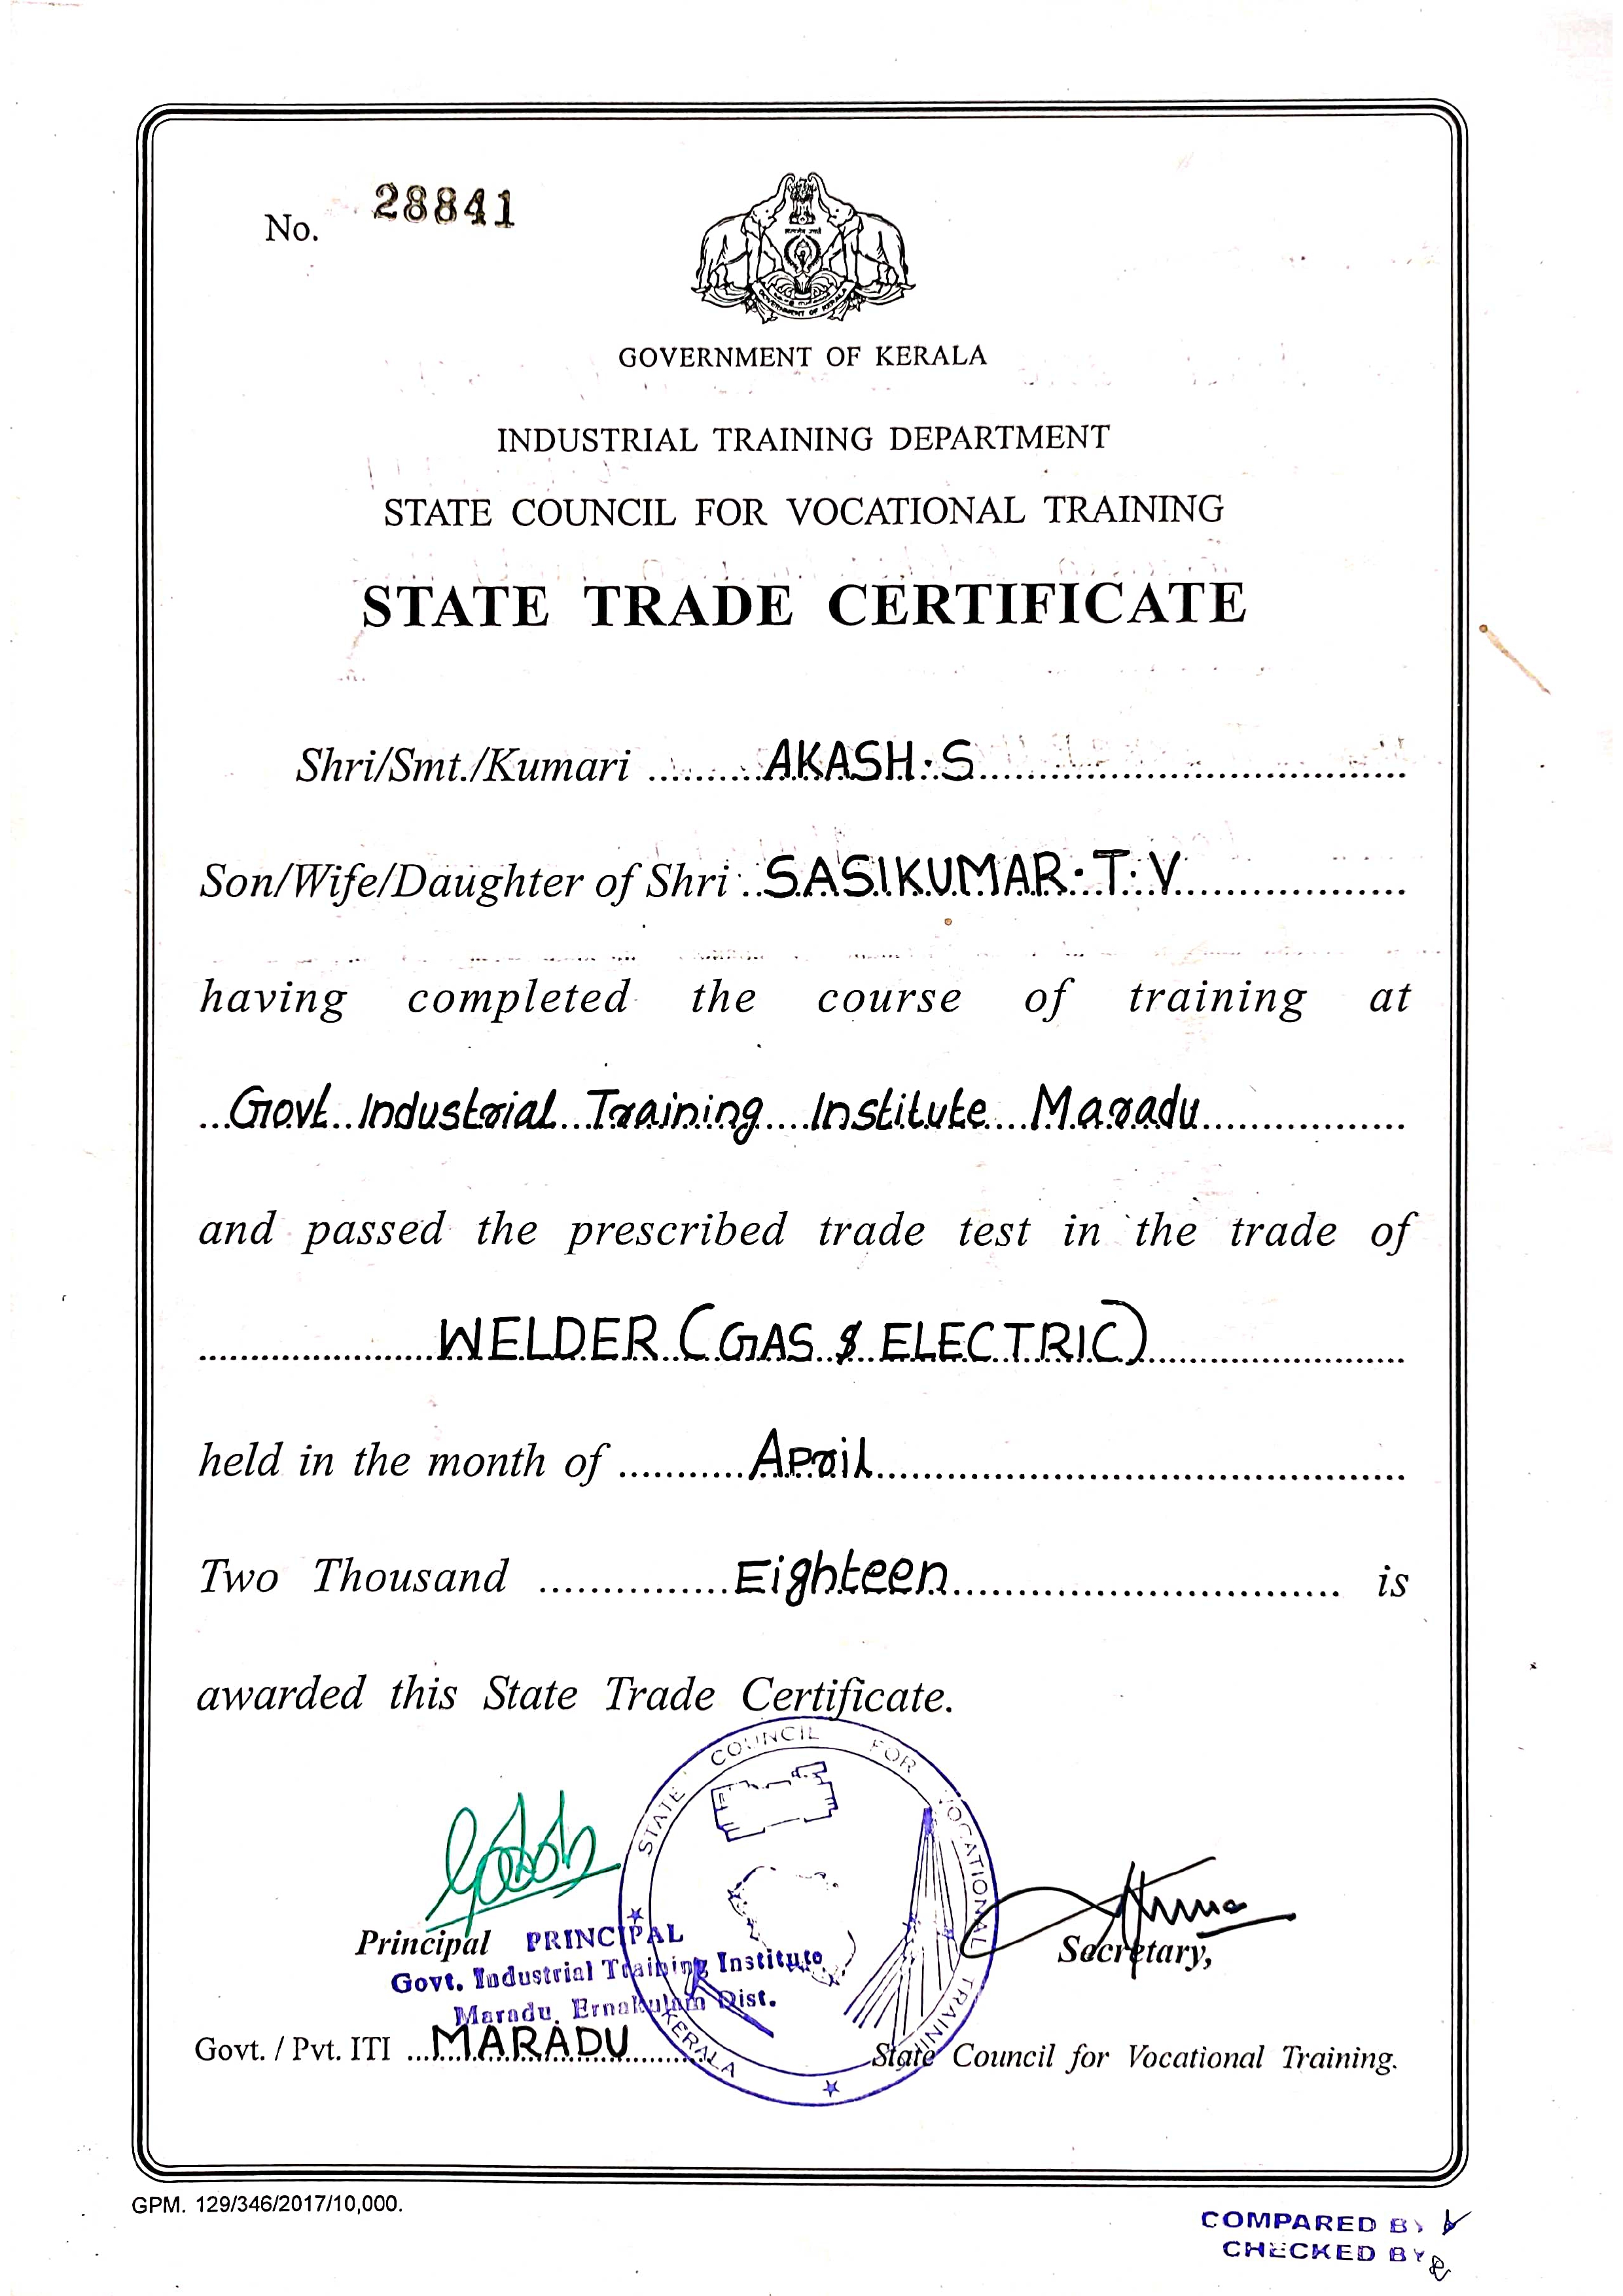 No. 28841
सत्यमेव जयते
GOVERNMENT OF KERALA
GOVERNMENT OF KERALA
INDUSTRIAL TRAINING DEPARTMENT
STATE COUNCIL FOR VOCATIONAL TRAINING
STATE TRADE CERTIFICATE
Shri/Smt./Kumari ..........AKASH.S..........
Son/Wife/Daughter of Shri ..SASIKUMAR.T.V..........
having completed the course of training at
...Govt. Industrial Training Institute Maradu..........
and passed the prescribed trade test in the trade of
..........WELDER (GAS & ELECTRIC)..........
held in the month of ..........April..........
Two Thousand ..........Eighteen.......... is
awarded this State Trade Certificate.
STATE COUNCIL FOR VOCATIONAL TRAINING
KERALA
Principal PRINCIPAL
Secretary,
Govt. Industrial Training Institute
Maradu, Ernakulam Dist.
Govt. / Pvt. ITI ...MARADU..........
State Council for Vocational Training.
GPM. 129/346/2017/10,000.
COMPARED BY
CHECKED BY